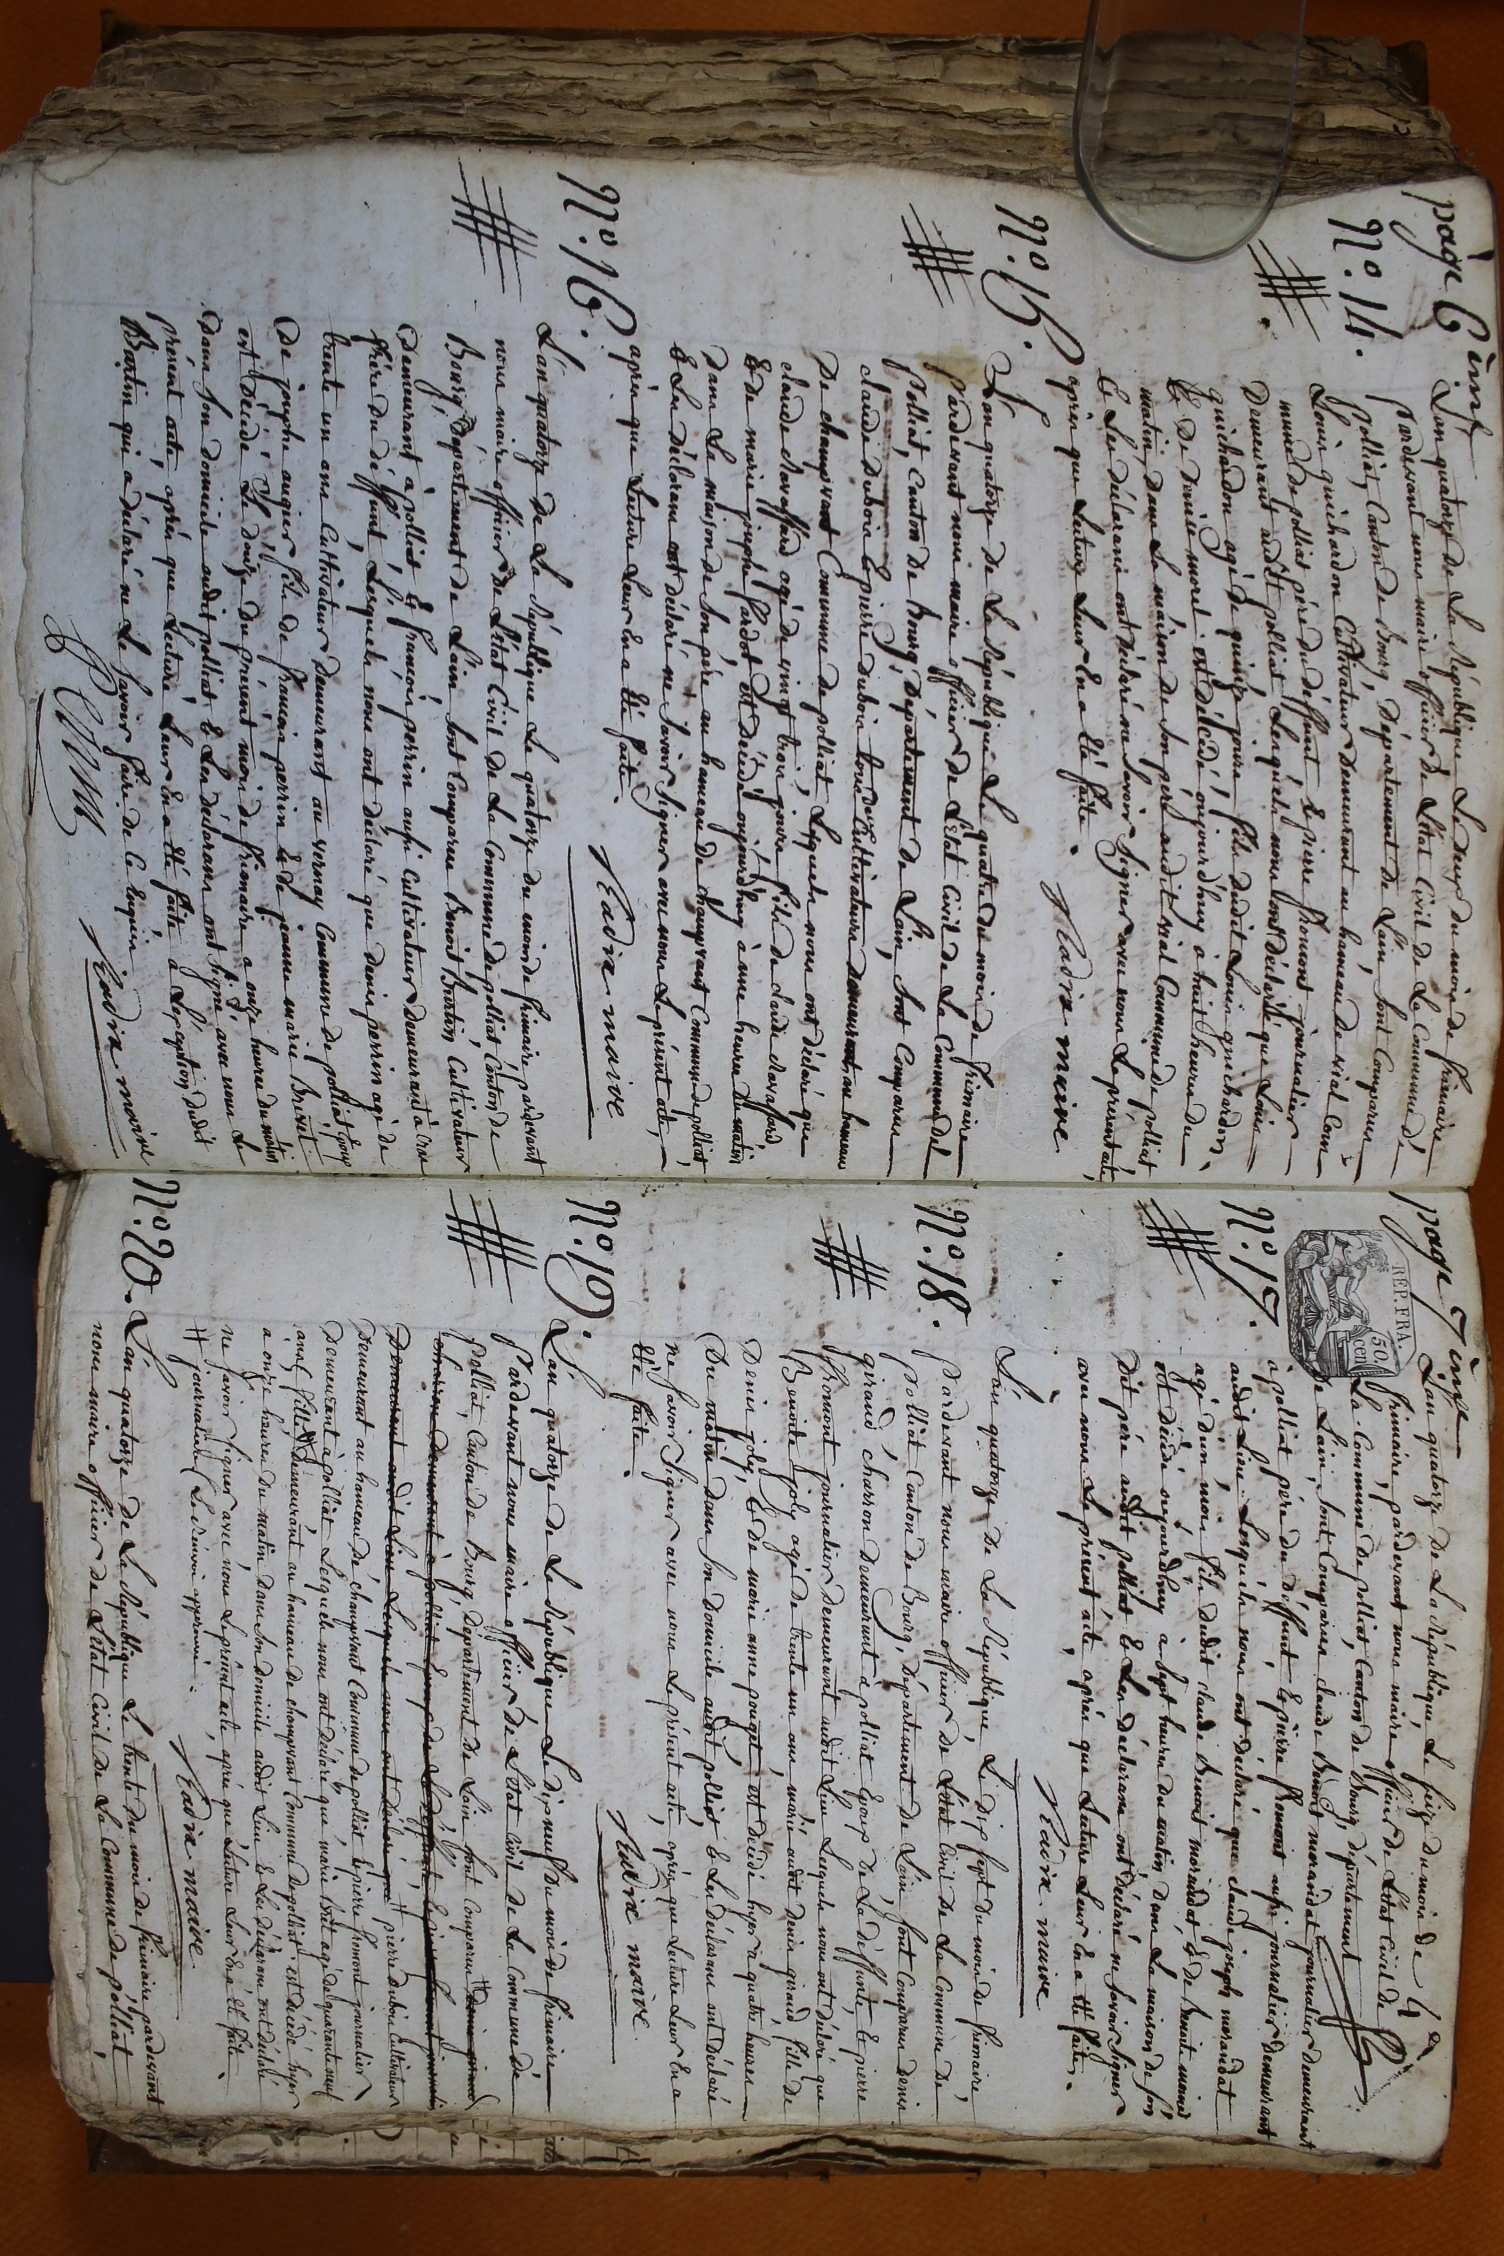 page 6 ème
N.º 14.
L'an quatorze de La République Le deux du mois de frimaire
Pardevant nous maire officier de L'état Civil de La Commune de
polliat, Canton de Bourg, Département de L'ain, sont Comparus
Louis guichardon Cultivateur demeurant au hameau de vial Com-
mune de polliat père du déffunt & pierre fromont journalier
Demeurant audit polliat Lesquels nous ont déclaré que Louis
guichardon agé de quinze jours fils dudit Louis guichardon,
& De Denise morel est décédé aujourd'huy à huit heures du
matin, dans La maison de son père audit vial Commune de polliat
& Les déclarans ont déclaré ne savoir signer avec nous Le présent acte,
après que Lecture Leur En a été faite.
Nadia maire
N.º 15.
L'an quatorze de La République Le quatre du mois de frimaire
Pardevant nous maire officier de L'Etat Civil de La Commune de
polliat, Canton de Bourg, Département de L'ain, sont Comparus
claude dubois & pierre dubois tous deux Cultivateurs demeurant au hameau
De champvent Commune de polliat Lesquels nous ont déclaré que
claude ravassard agé de vingt trois jours fils de claude ravassard
& de marie josephe fardot est décédé aujourd'huy à une heure du matin
dans La maison de son père au hameau de champvent Commune de polliat,
& Les déclarans ont déclaré ne savoir signer avec nous Le présent acte,
après que Lecture Leur En a été faite.
Nadia maire
N.º 16.
L'an quatorze de La République Le quatorze du mois de frimaire pardevant
nous maire officier de L'état Civil de La Commune de polliat Canton de
Bourg, Département de L'ain sont Comparus Benoit Brontin Cultivateur
Demeurant à polliat & francois perrin aussi Cultivateur demeurant à
frère du déffunt, Lesquels nous ont déclaré que denis perrin agé de
trente un ans Cultivateur Demeurant au vernay Commune de polliat Epoux
De josephe augier fils de francois perrin & de jeanne marie Brevet
est décédé Le douze du présent mois de frimaire a onze heures du matin
Dans son domicile audit polliat & Les déclarans ont signé avec nous Le
présent acte, après que Lecture Leur En a été faite à L'exception dudit
Brontin qui a déclaré ne Le savoir faire de ce Enquis
Nadia maire
page 7 ème
REP. FRA.
50. cen
N.º 17.
L'an quatorze de La République, Le seize du mois de
frimaire, pardevant nous maire officier de L'état Civil de
La Commune de polliat, Canton de Bourg, département
de L'ain, sont Comparus claude Benoit morandat journalier demeurant
à polliat père du déffunt & pierre fromont aussi journalier demeurant
audit Lieu Lesquels nous ont déclaré que claude joseph morandat
agé d'un mois fils dudit claude Benoit morandat & de Benoite
est décédé aujourd'huy a sept heures du matin Dans La maison de son
Dit père audit polliat & Les déclarans ont déclaré ne savoir signer
avec nous Le présent acte, après que Lecture Leur En a été faite.
Nadia maire
N.º 18.
L'an quatorze de La République, Le dix sept du mois de frimaire,
Pardevant nous maire officier de L'état Civil de La Commune de
polliat Canton de Bourg, Département de L'ain, sont Comparus denis
giraud, charron demeurant à polliat Epoux de La déffunte, & pierre
fromont journalier demeurant audit Lieu, Lesquels nous ont déclaré que
Benoite joly agée de trente un ans mariée audit denis giraud fille de
Denis joly, & de marie anne pouget, est décédée hyer à quatre heures
Du matin dans son domicile audit polliat & Les déclarans ont déclaré
ne savoir signer avec nous Le présent acte, après que Lecture Leur En a
été faite.
Nadia maire
N.º 19.
L'an quatorze de La République Le dix neuf du mois de frimaire
Pardevant nous maire officier de L'état Civil de La Commune de
Polliat, Canton de Bourg, Département de L'ain sont Comparus # denis giraud
charron demeurant à polliat Epoux de La déffunte & pierre fromont journalier
Demeurant audit Lieu Lesquels nous ont déclaré que # pierre dubois Cultivateur
Demeurant au hameau de champvent Commune de polliat & pierre fromont journalier
Demeurant à polliat Lesquels nous ont déclaré que marie agé de quarante neuf
ans fille # demeurant au hameau de champvent Commune de polliat est décédé hyer
a onze heures du matin dans son domicile audit Lieu & Les déclarans ont déclaré
ne savoir signer avec nous Le présent acte après que Lecture Leur En a été faite.
# journalière Le renvoi approuvé.
Nadia maire
N.º 20.
L'an quatorze de La République Le trente du mois de frimaire pardevant
nous maire officier de L'état Civil de La Commune de polliat,